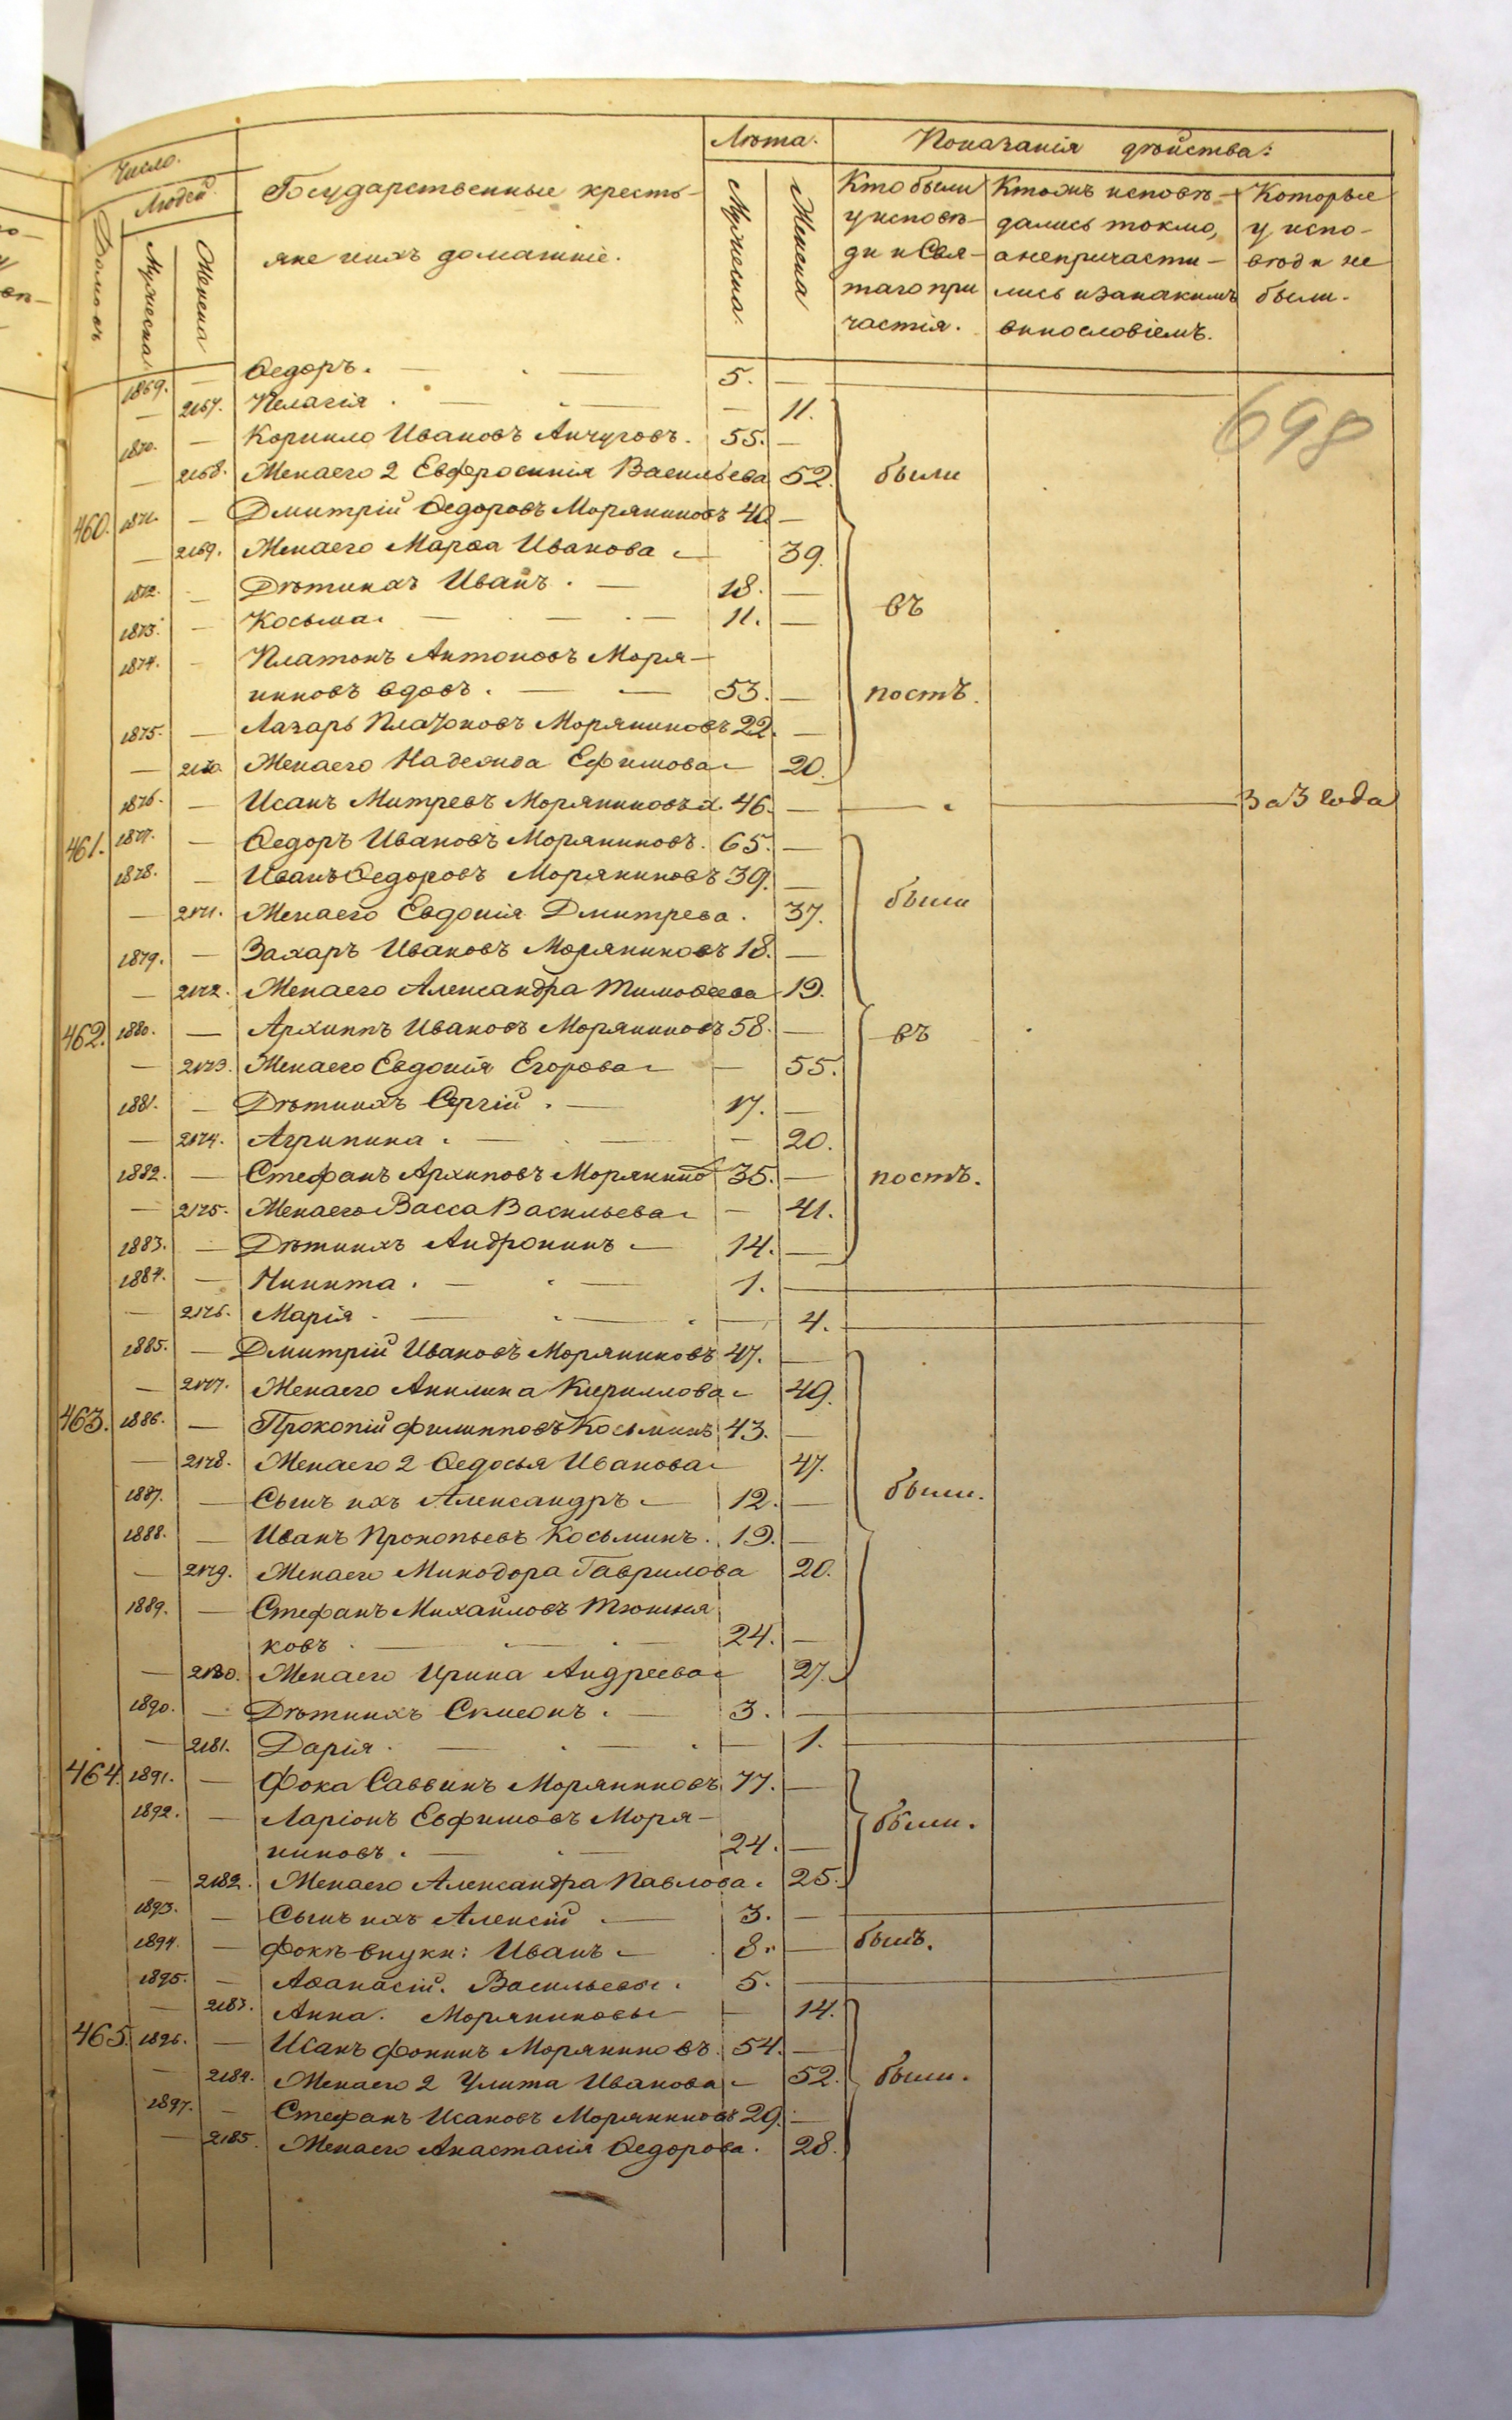 Число.
Людей.
Домовъ
Мужеска.
Женска
Государственные кресть-
яне и ихъ домашніе.
Лѣта.
Мужеска.
Женска
Показанія двойства:
Кто были
у исповѣ-
ди и Свя-
таго при
частія.
Ктожъ исповѣ-
дались токмо,
а непричасти-
лись и за какимъ
винословіемъ.
Которые
у испо-
вѣди не
были.
698
1869. — Ѳедоръ. — 5. —
— 2167. Пелагія. — — 11.
1870. — Корнило Ивановъ Анчуговъ. 55. —
— 2168. Жена его 2 Евфросинія Васильева 52. были
460. 1871. — Дмитрій Ѳедоровъ Моряниновъ 40 —
— 2169. Жена его Марѳа Иванова — 39.
1872. — Дѣти ихъ Иванъ. — 18. — въ
1873. — Косьма. — 11. —
1874. — Платонъ Антоновъ Моря-
ниновъ вдовъ. — 53. — постъ.
1875. — Лазарь Платоновъ Моряниновъ 22. —
— 2170 Жена его Надежда Ефимова — 20.
1876. — Исакъ Митревъ Моряниновъ х. 46. — — За 3 года
461. 1877. — Ѳедоръ Ивановъ Моряниновъ. 65. —
1878. — Иванъ Ѳедоровъ Моряниновъ 39. —
— 2171. Жена его Евдокія Дмитрева. 37. были
1879. — Захаръ Ивановъ Моряниновъ 18. —
— 2172. Жена его Александра Тимоѳеева 19.
462. 1880. — Архиппъ Ивановъ Моряниновъ 58. — въ
— 2173. Жена его Евдокія Егорова — — 55.
1881. — Дѣти ихъ Сергій. — 17. —
— 2174. Агрипина. — — 20.
1882. — Стефанъ Архиповъ Моряниновъ 35. — постъ.
— 2175. Жена его Васса Васильева — — 41.
1883. — Дѣти ихъ Андроникъ — 14. —
1884. — Никита. — 1. —
— 2176. Марія. — — 4. —
1885. — Дмитрій Ивановъ Моряниновъ 47. —
— 2177. Жена его Акилина Кириллова — 49.
463. 1886. — Прокопій Филипповъ Косьминъ 43. —
— 2178. Жена его 2 Ѳедосья Иванова — 47.
1887. — Сынъ ихъ Александръ — 12. — были.
1888. — Иванъ Прокопьевъ Косьминъ. 19. —
— 2179. Жена его Минодора Гаврилова 20.
1889. — Стефанъ Михайловъ Тюшня
ковъ. — 24. —
— 2180. Жена его Ирина Андреева — 27.
1890. — Дѣти ихъ Симеонъ. — 3. —
— 2181. Дарія. — — 1. —
464. 1891. — Фока Саввинъ Моряниновъ 77. —
1892. — Ларіонъ Евфимовъ Моря-
ниновъ. — 24. — были.
— 2182. Жена его Александра Павлова. 25.
1893. — Сынъ ихъ Алексій — 3. —
1894. — Фокѣ внуки: Иванъ — 8. — былъ.
1895. — Аѳанасій. Васильевы. 5. —
— 2183. Анна. Моряниновы — — 14.
465. 1896. — Исакъ Фокинъ Моряниновъ. 54. —
— 2184. Жена его 2 Улита Иванова — 52. были.
1897. — Стефанъ Исаковъ Моряниновъ 29. —
— 2185. Жена его Анастасія Ѳедорова. 28.